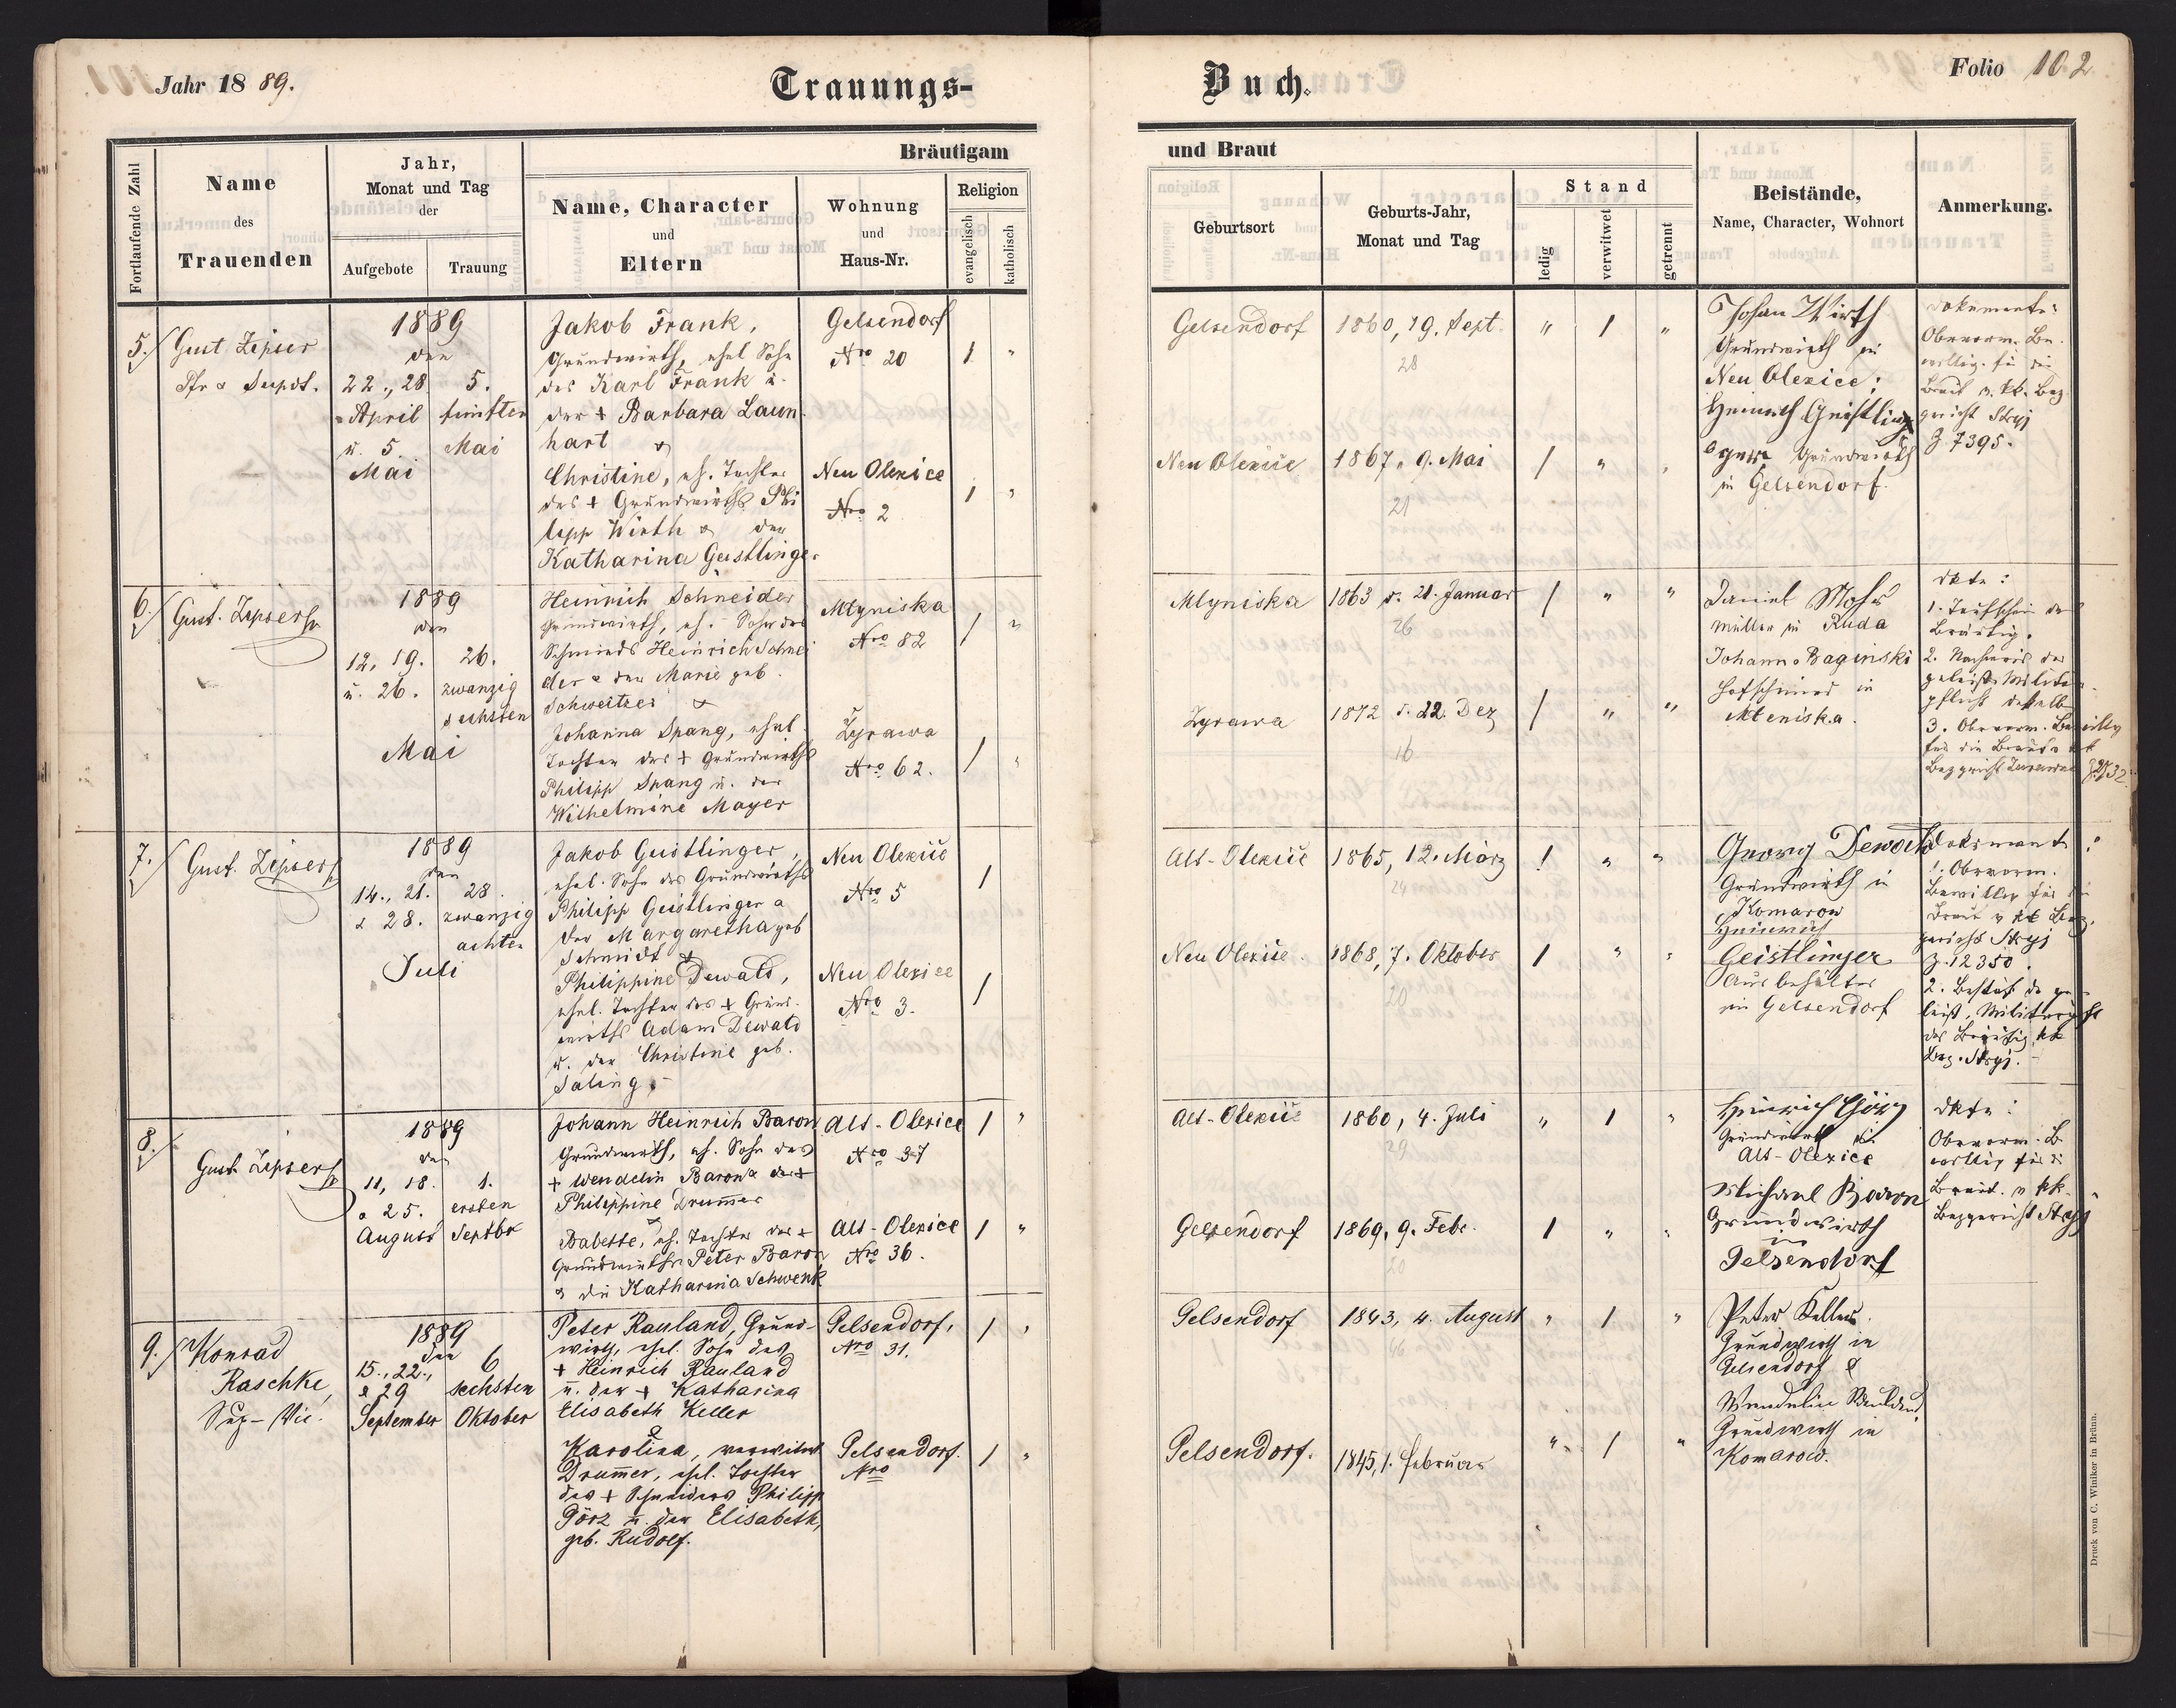 Jahr 18 89.
Trauungs-
Buch.
Folio 102
Fortlaufende Zahl
Name
des
Trauenden
Jahr,
Monat und Tag
der
Aufgebote
Trauung
Bräutigam
und Braut
Name, Character
und
Eltern
Wohnung
und
Haus-Nr.
Religion
evangelisch
katholisch
Geburtsort
Geburts-Jahr,
Monat und Tag
Stand
ledig
verwitwet
getrennt
Beistände,
Name, Character, Wohnort
Anmerkung.
5.
Gust Zipser
Pfr & Supdt.
1889
den
22., 28
April
u. 5.
Mai
5.
fünften
Mai
Jakob Frank,
Grundwirth, ehel Sohn
des Karl Frank u.
der + Barbara Laun
hart
&
Christine, eh. Tochter
des + Grundwirths Phi
lipp Wirth & der
Katharina Geistlinger
Gelsendorf
Nro 20
Neu Olexice
Nro 2
1 "
1 "
Gelsendorf
1860, 19. Sept.
28
" 1 "
Neu Olexice
1867, 9. Mai
21
1 " "
Johan Wirth
Grundwirth in
Neu Olexice;
Heinrich Geistlinger
Grundwirth
in Gelsendorf.
Dokumente:
Obervorm. Be
willig. für die
Braut v. kk. Bez
gericht Stryj
Z 7395.
6.
Gust. Zipser
1889
den
12, 19.
u. 26.
26.
zwanzig
sechsten
Mai
Heinrich Schneider
Grundwirth, eh. Sohn des
Schmieds Heinrich Schnei
der & der Marie geb.
Schweitzer &
Johanna Spang, ehel
Tochter des + Grundwirths
Philipp Spang u. der
Wilhelmine Mayer
Mlyniska
Nro 82
Zyrawa
Nro 62.
1 "
1 "
Mlyniska
1863 d. 21. Januar
26
1 " "
Zyrawa
1872 d. 22. Dez
16
1 " "
Daniel Mohr
Müller in Ruda
Johann Baginski
Hofschmied in
Mleniska.
dkte:
1. Taufschein des
Bräutig.
2. Nachweis der
geleist. Militär
pflicht desselb
3. Obervorm. Bewillig
für die Braut
Bezgericht
7.
Gust. Zipser
1889
den
14., 21.
& 28.
28.
zwanzig
achten
Juli
Jakob Geistlinger,
ehel. Sohn des Grundwirths
Philipp Geistlinger &
der Margaretha geb
Schmidt &
Philippine Dewald,
ehel. Tochter des + Grund-
wirths Adam Dewald
u. der Christine geb.
Saling.
Neu Olexice
Nro 5
Neu Olexice
Nro 3.
1
1
Alt-Olexice
1865, 12. März
24
1 " "
Neu Olexice.
1868, 7. Oktober
20
1 " "
Georg Dewald
Grundwirth in
Komarow
Heinrich
Geistlinger
Ausbehälter
in Gelsendorf
Dokumente:
1. Obervorm.
Bewillig für die
Braut v kk Bez.
gericht Stryj
Z. 12350.
2. Bestät. der ge
leist. Militärpfl
des Bräutig. kk
Bez. Stryj.
8.
Gust. Zipser
1889
den
11, 18.
& 25.
August
1.
ersten
Septbr
Johann Heinrich Baron
Grundwirth, eh. Sohn des
+ Wendelin Baron & der +
Philippine Drum̄er
&
Babette, eh. Tochter des +
Grundwirths Peter Baron
& der Katharina Schwenk
Alt-Olexice
Nro 37
Alt-Olexice
Nro 36.
1 "
1 "
Alt-Olexice
1860, 4. Juli
29
" 1 "
Gelsendorf
1869, 9. Febr.
20
1 " "
Heinrich Görz
Grundwirth in
Alt-Olexice
Michael Baron
Grundwirth
in
Gelsendorf
dkte:
Obervorm. Be
willig für die
Braut. v kk.
Bezgericht Stryj
9.
Konrad
Raschke,
Sup-Vic.
1889
den
15., 22.,
& 29
September
6
sechsten
Oktober
Peter Rauland, Grund-
wirth, ehel. Sohn des
+ Heinrich Rauland
u. der + Katharina
Elisabeth Keller
&
Karolina, verwitwt
Drum̄er, ehel. Tochter
des + Schneiders Philipp
Görz u. der Elisabeth,
geb. Rudolf.
Gelsendorf,
Nro 31.
Gelsendorf.
Nro
1 "
1 "
Gelsendorf
1843, 4. August
46
" 1 "
Gelsendorf.
1845, 1. Februar
" 1 "
Peter Keller
Grundwirth in
Gelsendorf &
Wendelin Rauland,
Grundwirth in
Komarow.
Druck von C. Winiker in Brünn.